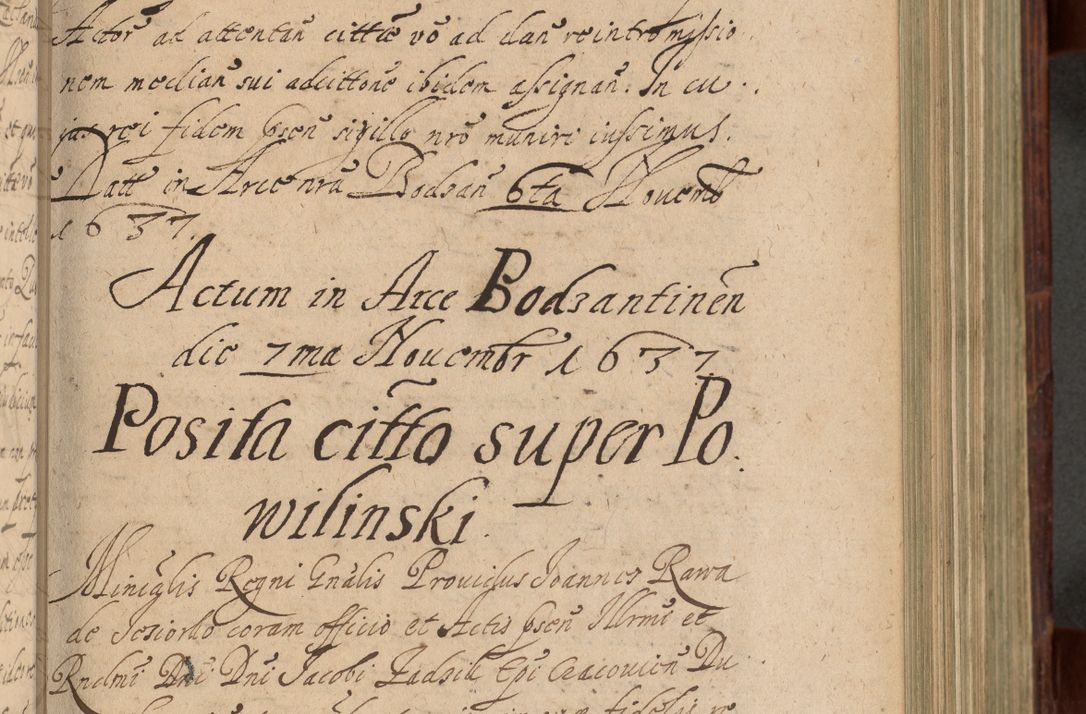 Actor̃ ad attentañ cittõe võ ad dañ reintromissio
nem mediañ sui adcittõne ibidem assignañ. In cu
jus rei fidem p̃señ sigillo nr̃o muniri iussimus.
Datt in Arce nr̃a Bodzañ 6ta Nouemb
1637.
Actum in Arce Bodzantineñ
die 7ma Nouembr 1637
Posita citt̃o super Po
wilinski.
Miniglis Regni Gnãlis Prouidus Joannes Rawa
de Jeziorko coram officio et Actis p̃señ Illrmi et
Rndmi Dni Dni Jacobi Zadzik Epi Cracouieñ Du